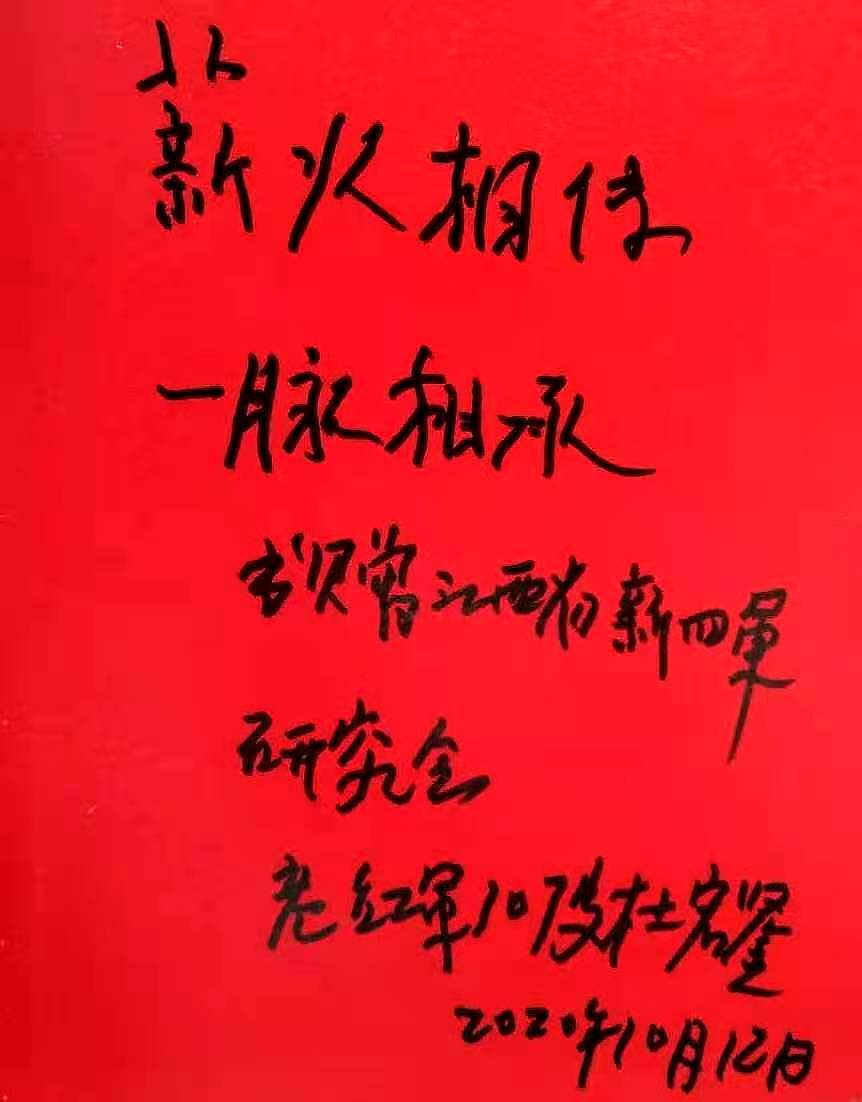 薪火相传
一脉相承
书赠江西省新四军
研究会
老红军杜宏鉴
2020年10月12日